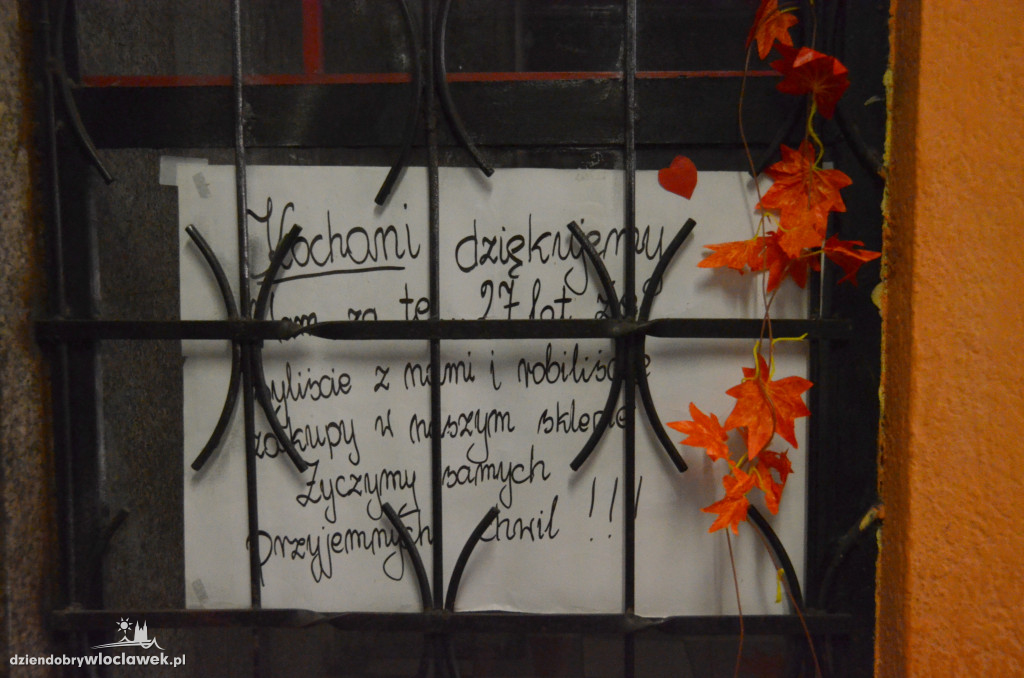 Kochani dziękujemy
Wam za te 27 lat że
byliście z nami i robiliście
zakupy w naszym sklepie
Życzymy samych
przyjemnych chwil !!!
dziendobrywloclawek.pl